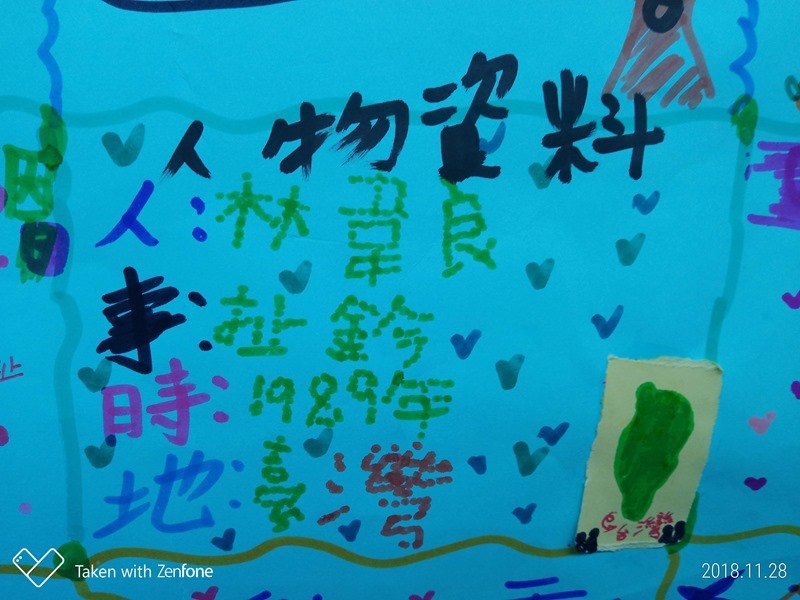 人物資料
人:林韋良
時:1989年
地:臺灣
台灣
Taken with Zenfone
2018.11.28